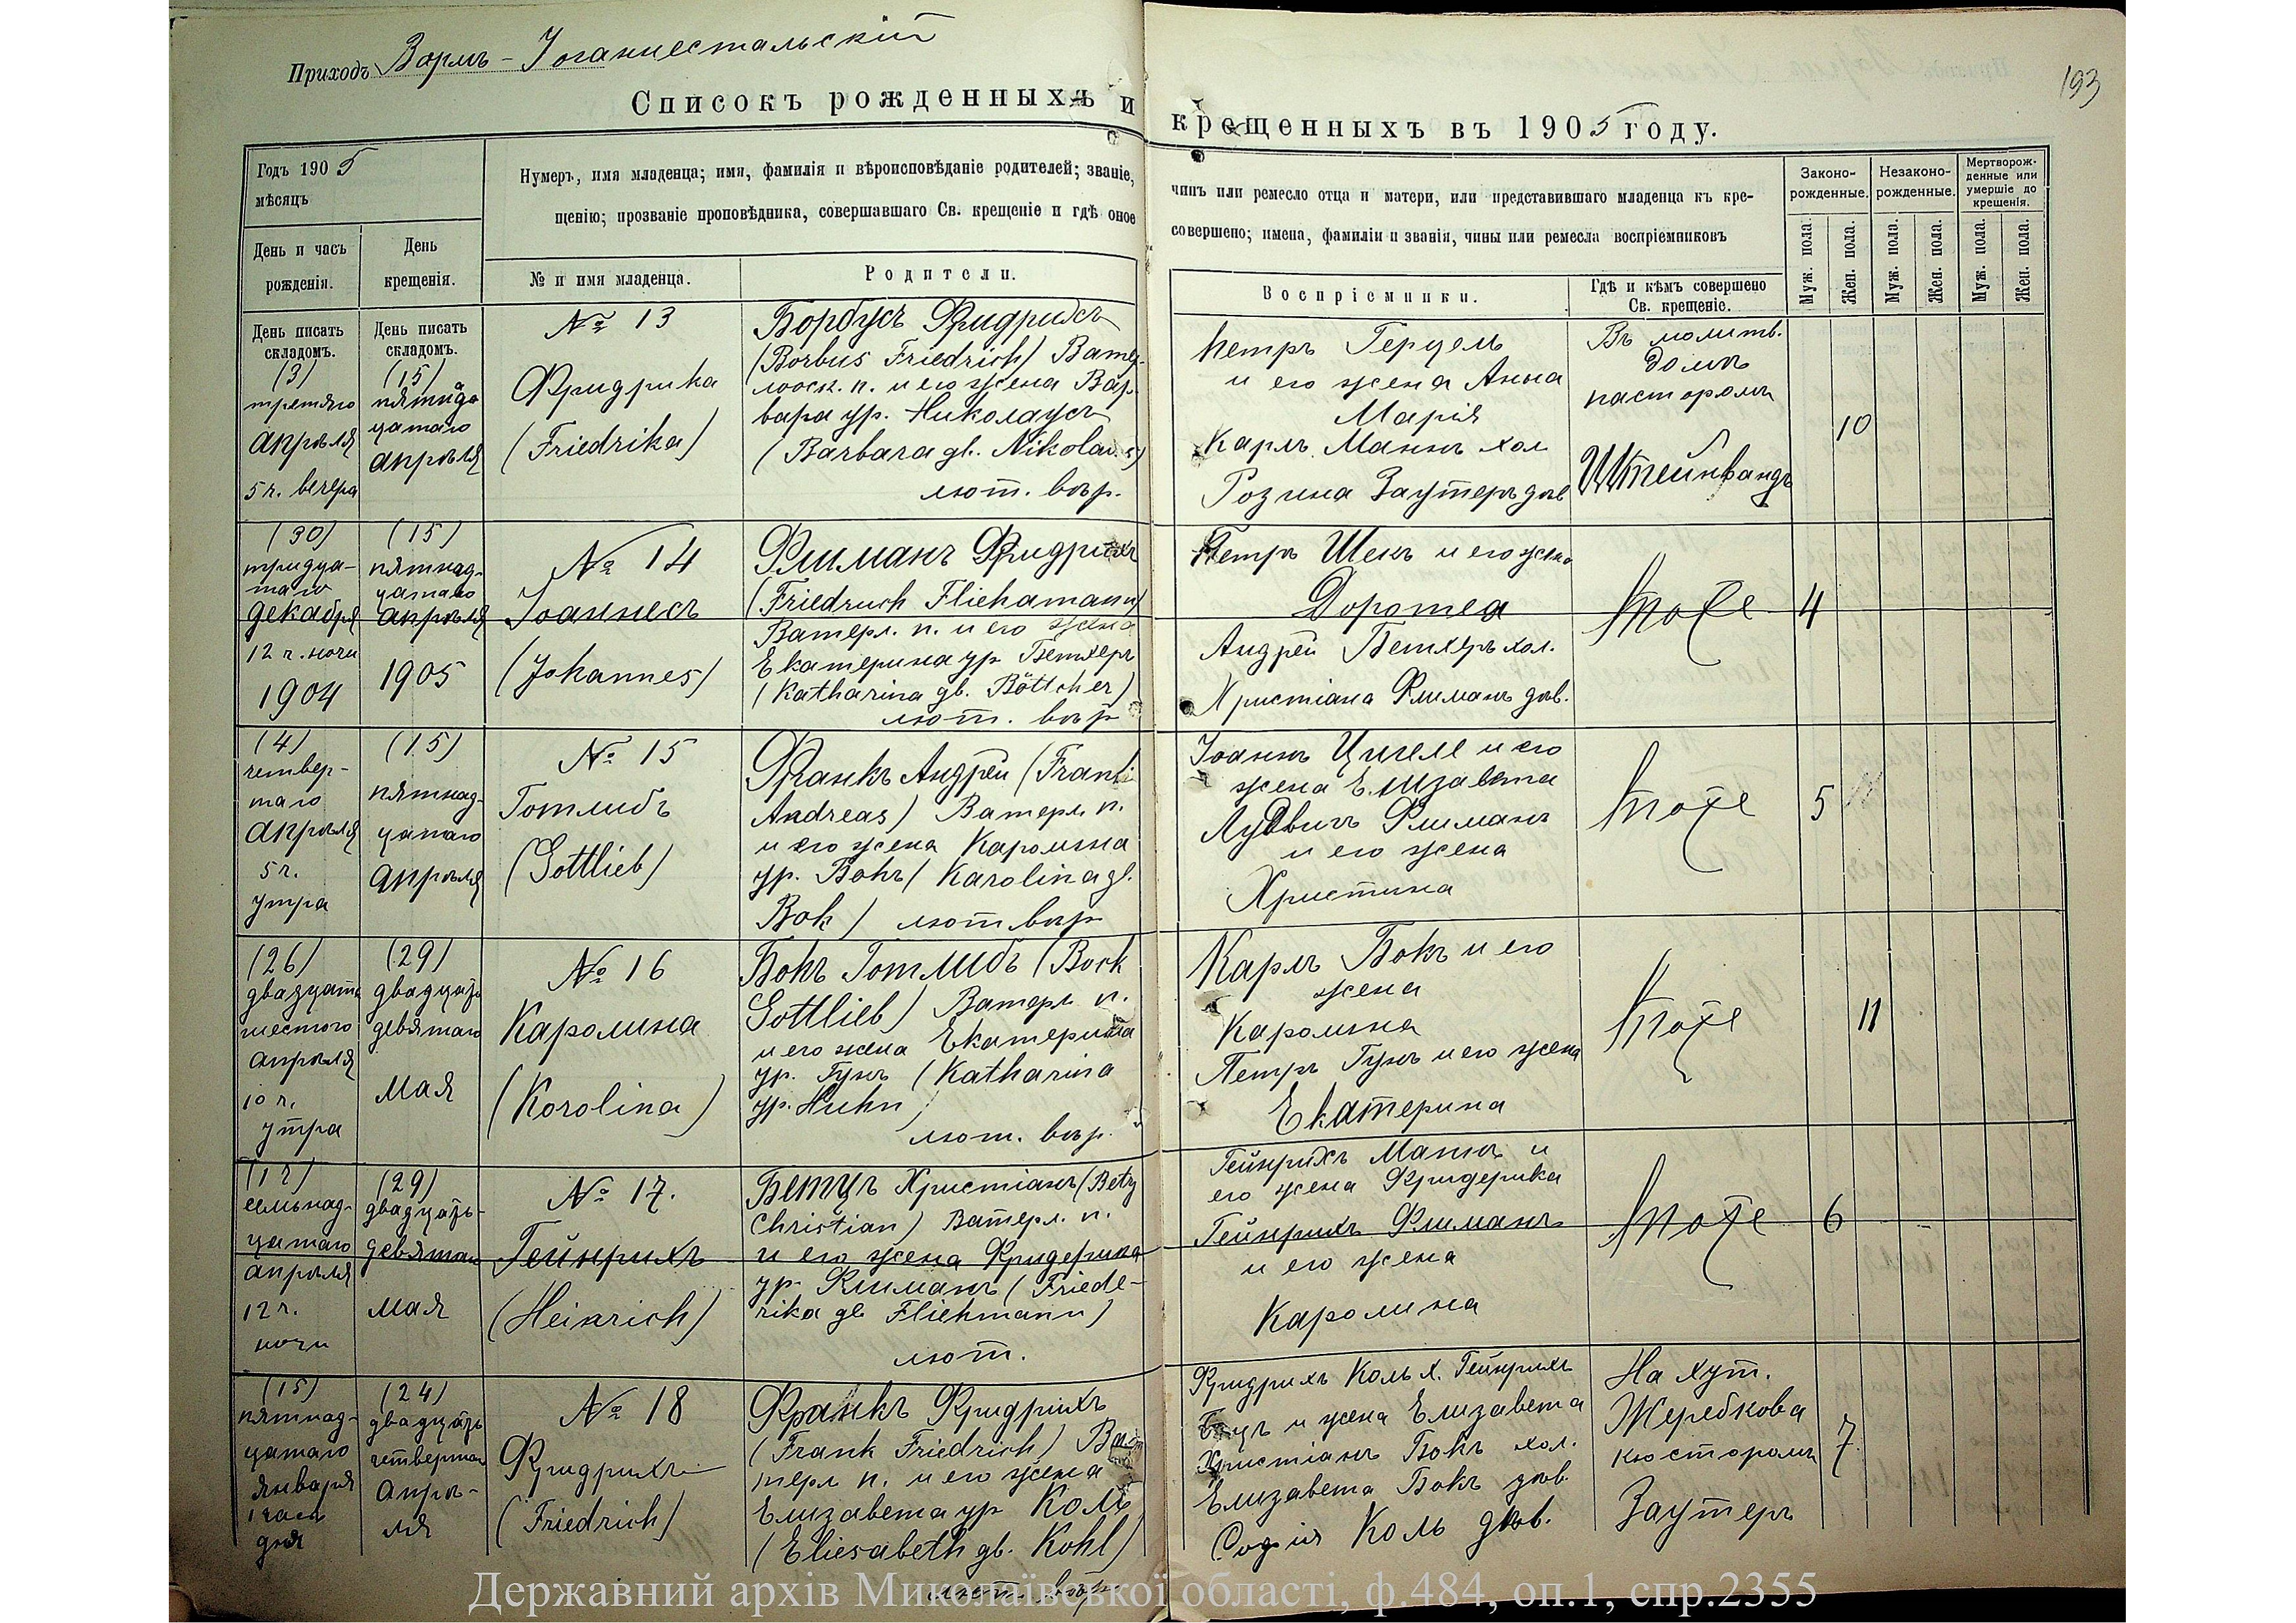 Приходъ Вормъ-Іоганнестальскій
193
Списокъ рожденныхъ и крещенныхъ въ 1905 году.
Годъ 1905
мѣсяцъ
Нумеръ, имя младенца; имя, фамилія и вѣроисповѣданіе родителей; званіе, чинъ или ремесло отца и матери, или представившаго младенца къ кре-
щенію; прозваніе проповѣдника, совершавшаго Св. крещеніе и гдѣ оное совершено; имена, фамиліи и званія, чины или ремесла воспріемниковъ
Законо-
рожденные.
Незаконо-
рожденные.
Мертворож-
денные или
умершіе до
крещенія.
День и часъ
рожденія.
День
крещенія.
№ и имя младенца.
Родители.
Воспріемники.
Гдѣ и кѣмъ совершено
Св. крещеніе.
Муж. пола.
Жен. пола.
Муж. пола.
Жен. пола.
Муж. пола.
Жен. пола.
День писать
складомъ.
День писать
складомъ.
(3)
третяго
апрѣля
5 ч. вечера
(15)
пятнад
цатаго
апрѣля
№ 13
Фридрика
(Friedrika)
Борбусъ Фридрихъ
(Borbus Friedrich) Ватер-
лооск. п. и его жена Вар-
вара ур. Николаусъ
(Barbara gb. Nikolaus)
лют. вѣр.
Петръ Герцель
и его жена Анна
Марія
Карлъ Маннъ хол
Розина Заутеръ дѣв
Въ молитв.
домѣ
пасторомъ
Штейнвандъ
10
(30)
тридца-
таго
декабря
12 ч. ночи
1904
(15)
пятнад-
цатаго
апрѣля
1905
№ 14
Іоаннесъ
(Johannes)
Флиманъ Фридрихъ
(Friedruch Fliehamann)
Ватерл. п. и его жена
Екатерина ур Бетхеръ
(Katharina gb. Böttcher)
лют. вѣр
Петръ Шекъ и его жена
Доротеа
Андрей Бетхеръ хол.
Христіана Флиманъ дѣв.
Тоже
4
(4)
четвер-
таго
апрѣля
5 ч.
утра
(15)
пятнад-
цатаго
апрѣля
№ 15
Готлибъ
(Gottlieb)
Франкъ Андрей (Frank
Andreas) Ватерл п.
и его жена Каролина
ур. Бокъ (Karolina gb.
Bok) лют вѣр
Іоаннъ Цигеле и его
жена Елизавета
Лудвигъ Флиманъ
и его жена
Христина
Тоже
5
(26)
двадцать
шестого
апрѣля
10 ч.
утра
(29)
двадцать
девятаго
мая
№ 16
Каролина
(Korolina)
Бокъ Готлибъ (Bock
Gottlieb) Ватерл п.
и его жена Екатерина
ур. Гунъ (Katharina
ур. Huhn)
лют. вѣр.
Карлъ Бокъ и его
жена
Каролина
Петръ Гунъ и его жена
Екатерина
Тоже
11
(17)
семьнад-
цатаго
апрѣля
12 ч.
ночи
(29)
двадцать-
девятаго
мая
№ 17.
Гейнрихъ
(Heinrich)
Бетцъ Христіанъ (Betz
Christian) Ватерл. п.
и его жена Фридерика
ур. Флиманъ (Friede-
rika gb Fliehmann)
лют.
Гейнрихъ и
его жена Фридерика
Гейнрихъ Флиманъ
и его жена
Каролина
Тоже
6
(15)
пятнад-
цатаго
января
1 часъ
дня
(24)
двадцать
четвертаго
апрѣ-
ля
№ 18
Фридрихъ
(Friedrich)
Франкъ Фридрихъ
(Frank Friedrich) Ва-
терл п. и его жена
Елизавета ур Коль
(Eliesabeth gb. Kohl)
лют. вѣр
Фридрихъ Коль х. Гейнрихъ
и жена Елизавета
Христіанъ Бокъ хол.
Елизавета Бокъ дѣв.
Софія Коль дѣв.
На хут.
Жеребкова
кюсторомъ
Заутеръ
7
Державний архів Миколаївської області, ф.484, оп.1, спр.2355